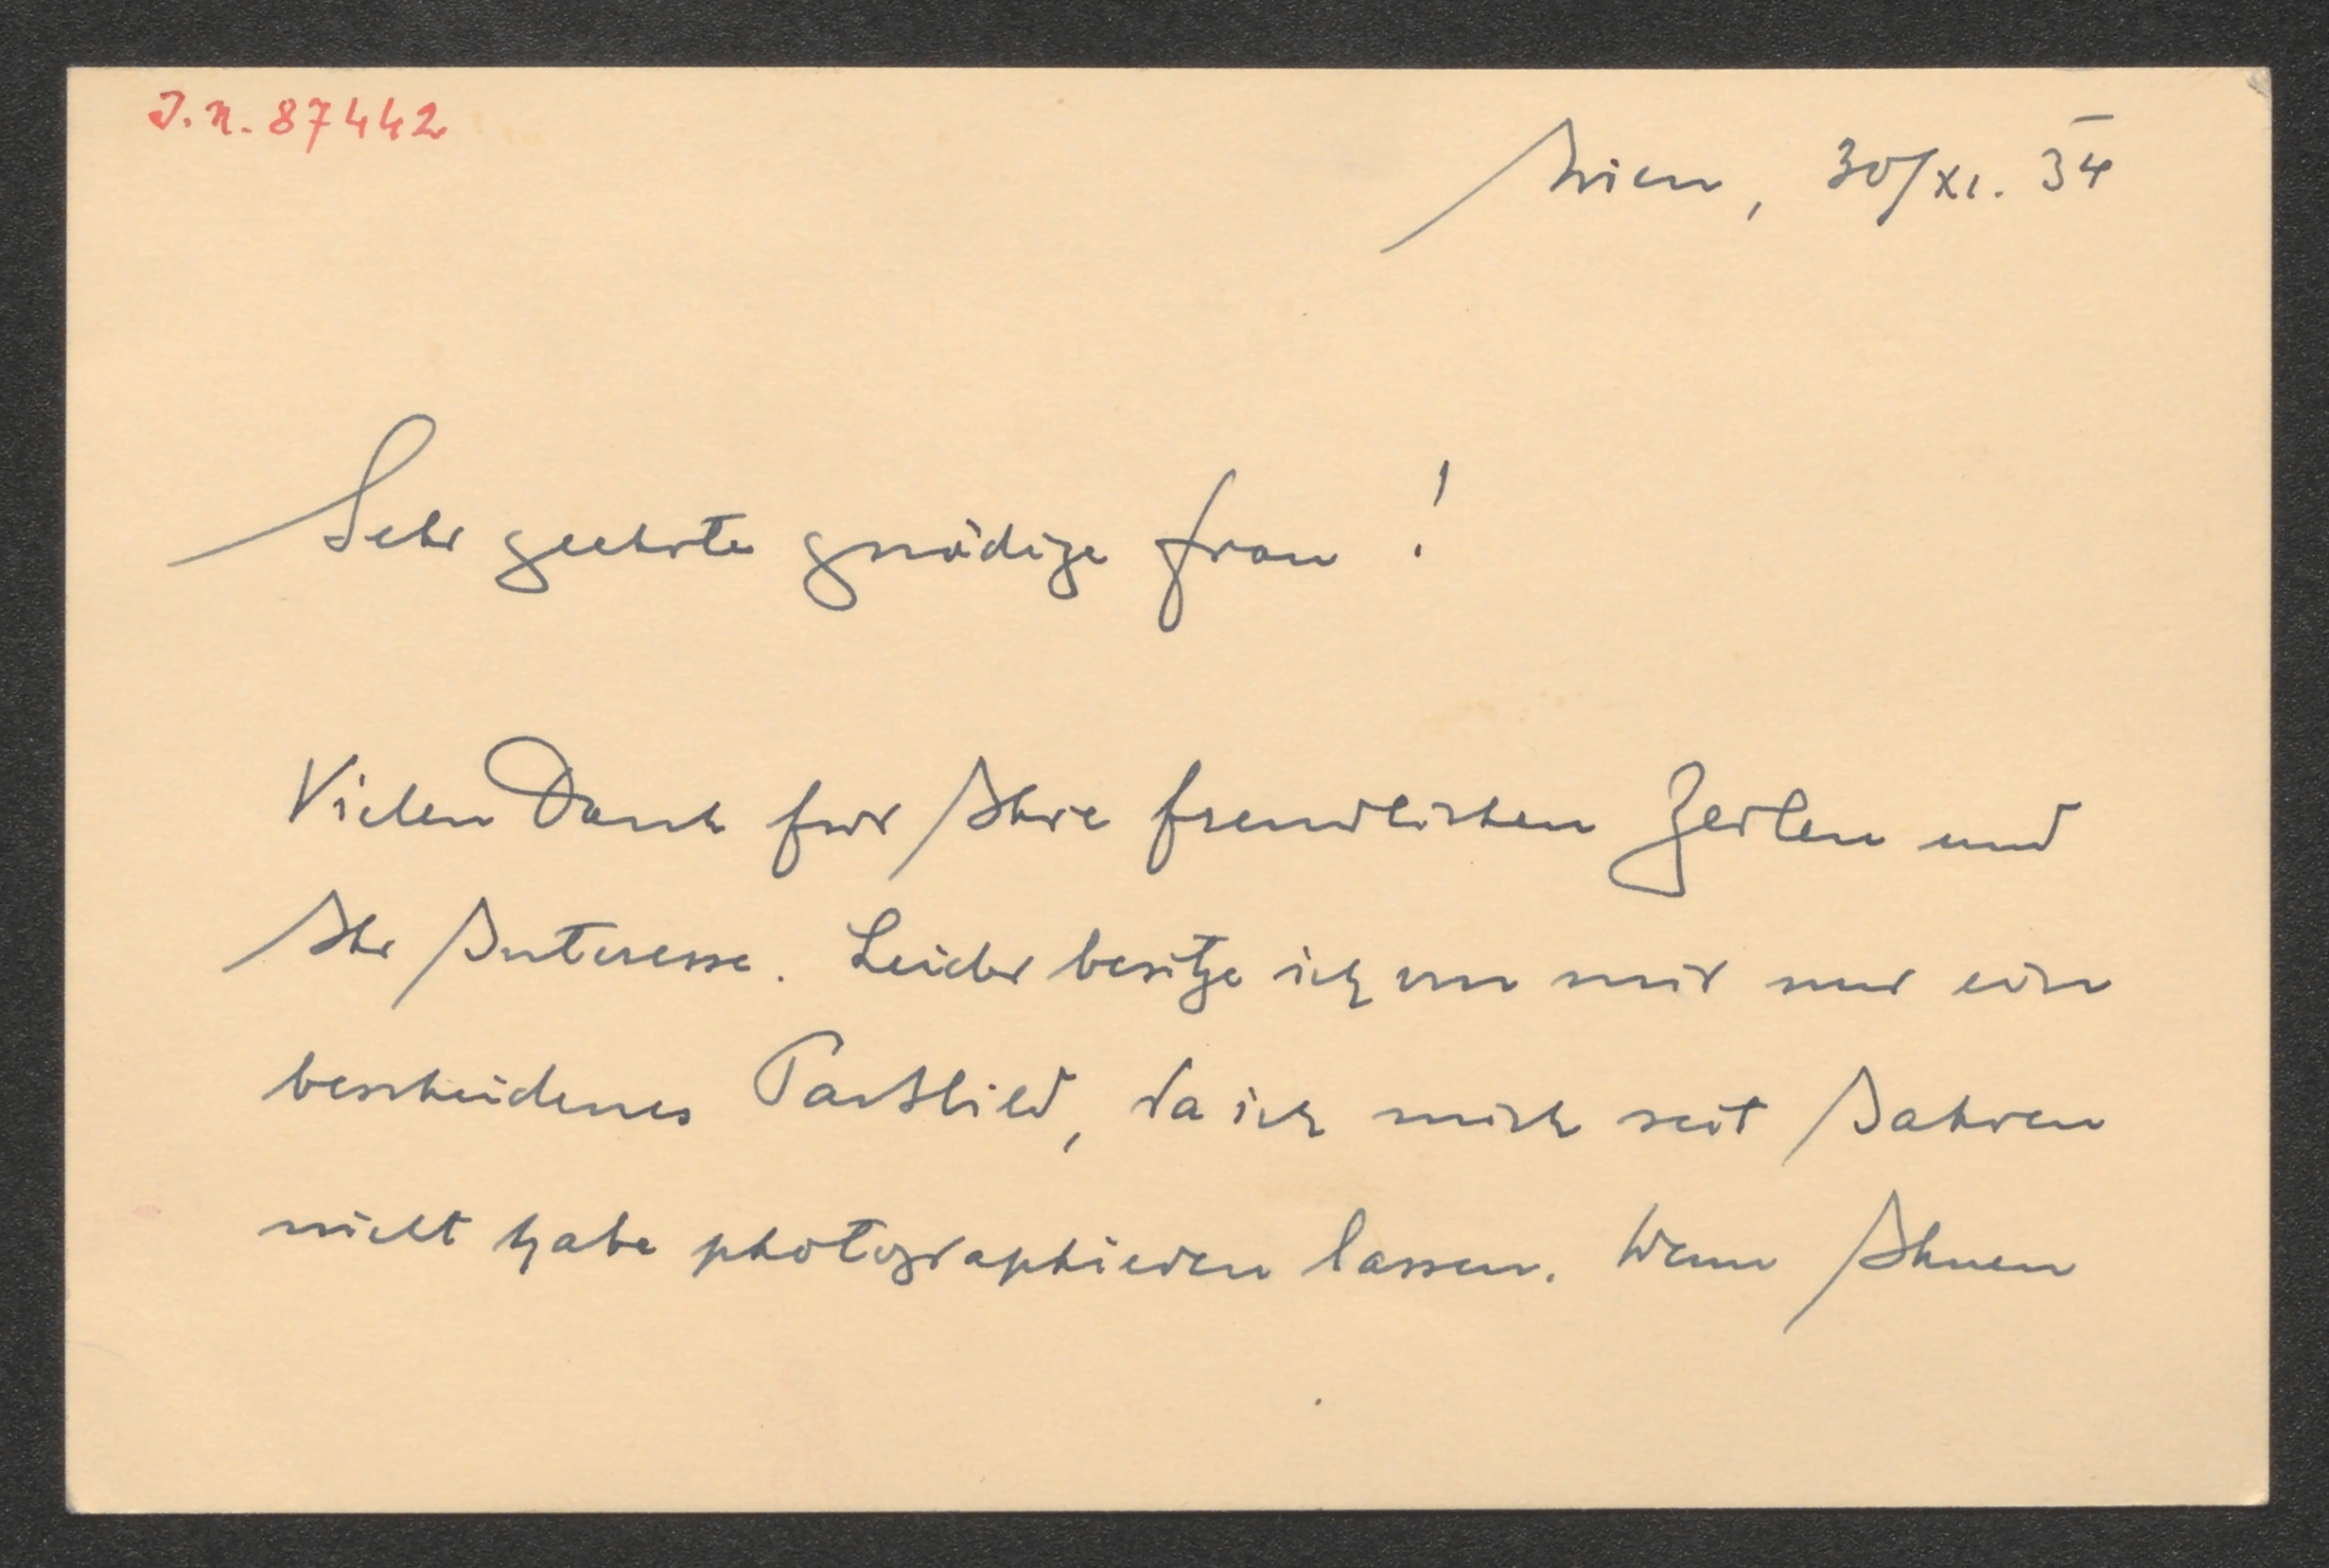 J.N. 87442
Wien, 30/XI. 34
Sehr geehrte gnädige Frau!
Vielen Dank für Ihre freundlichen Zeilen und
Ihr Interesse. Leider besitze ich von mir nur ein
bescheidenes Paßbild, da ich mich seit Jahren
nicht habe photographieren lassen. Wenn Ihnen